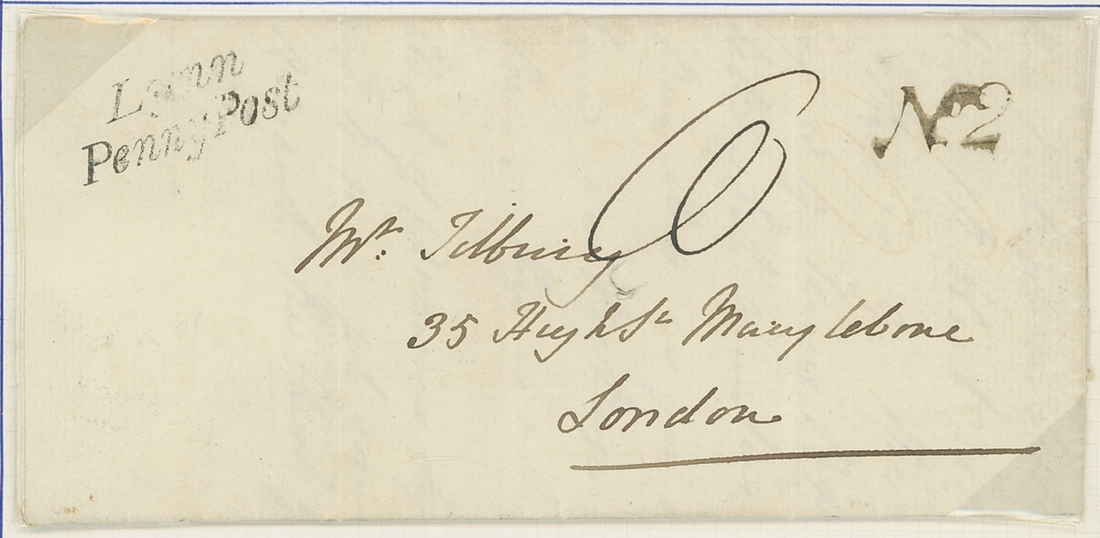 Lynn
Penny Post
No 2
Mr. Tilbury
35 High St Marylebone
London